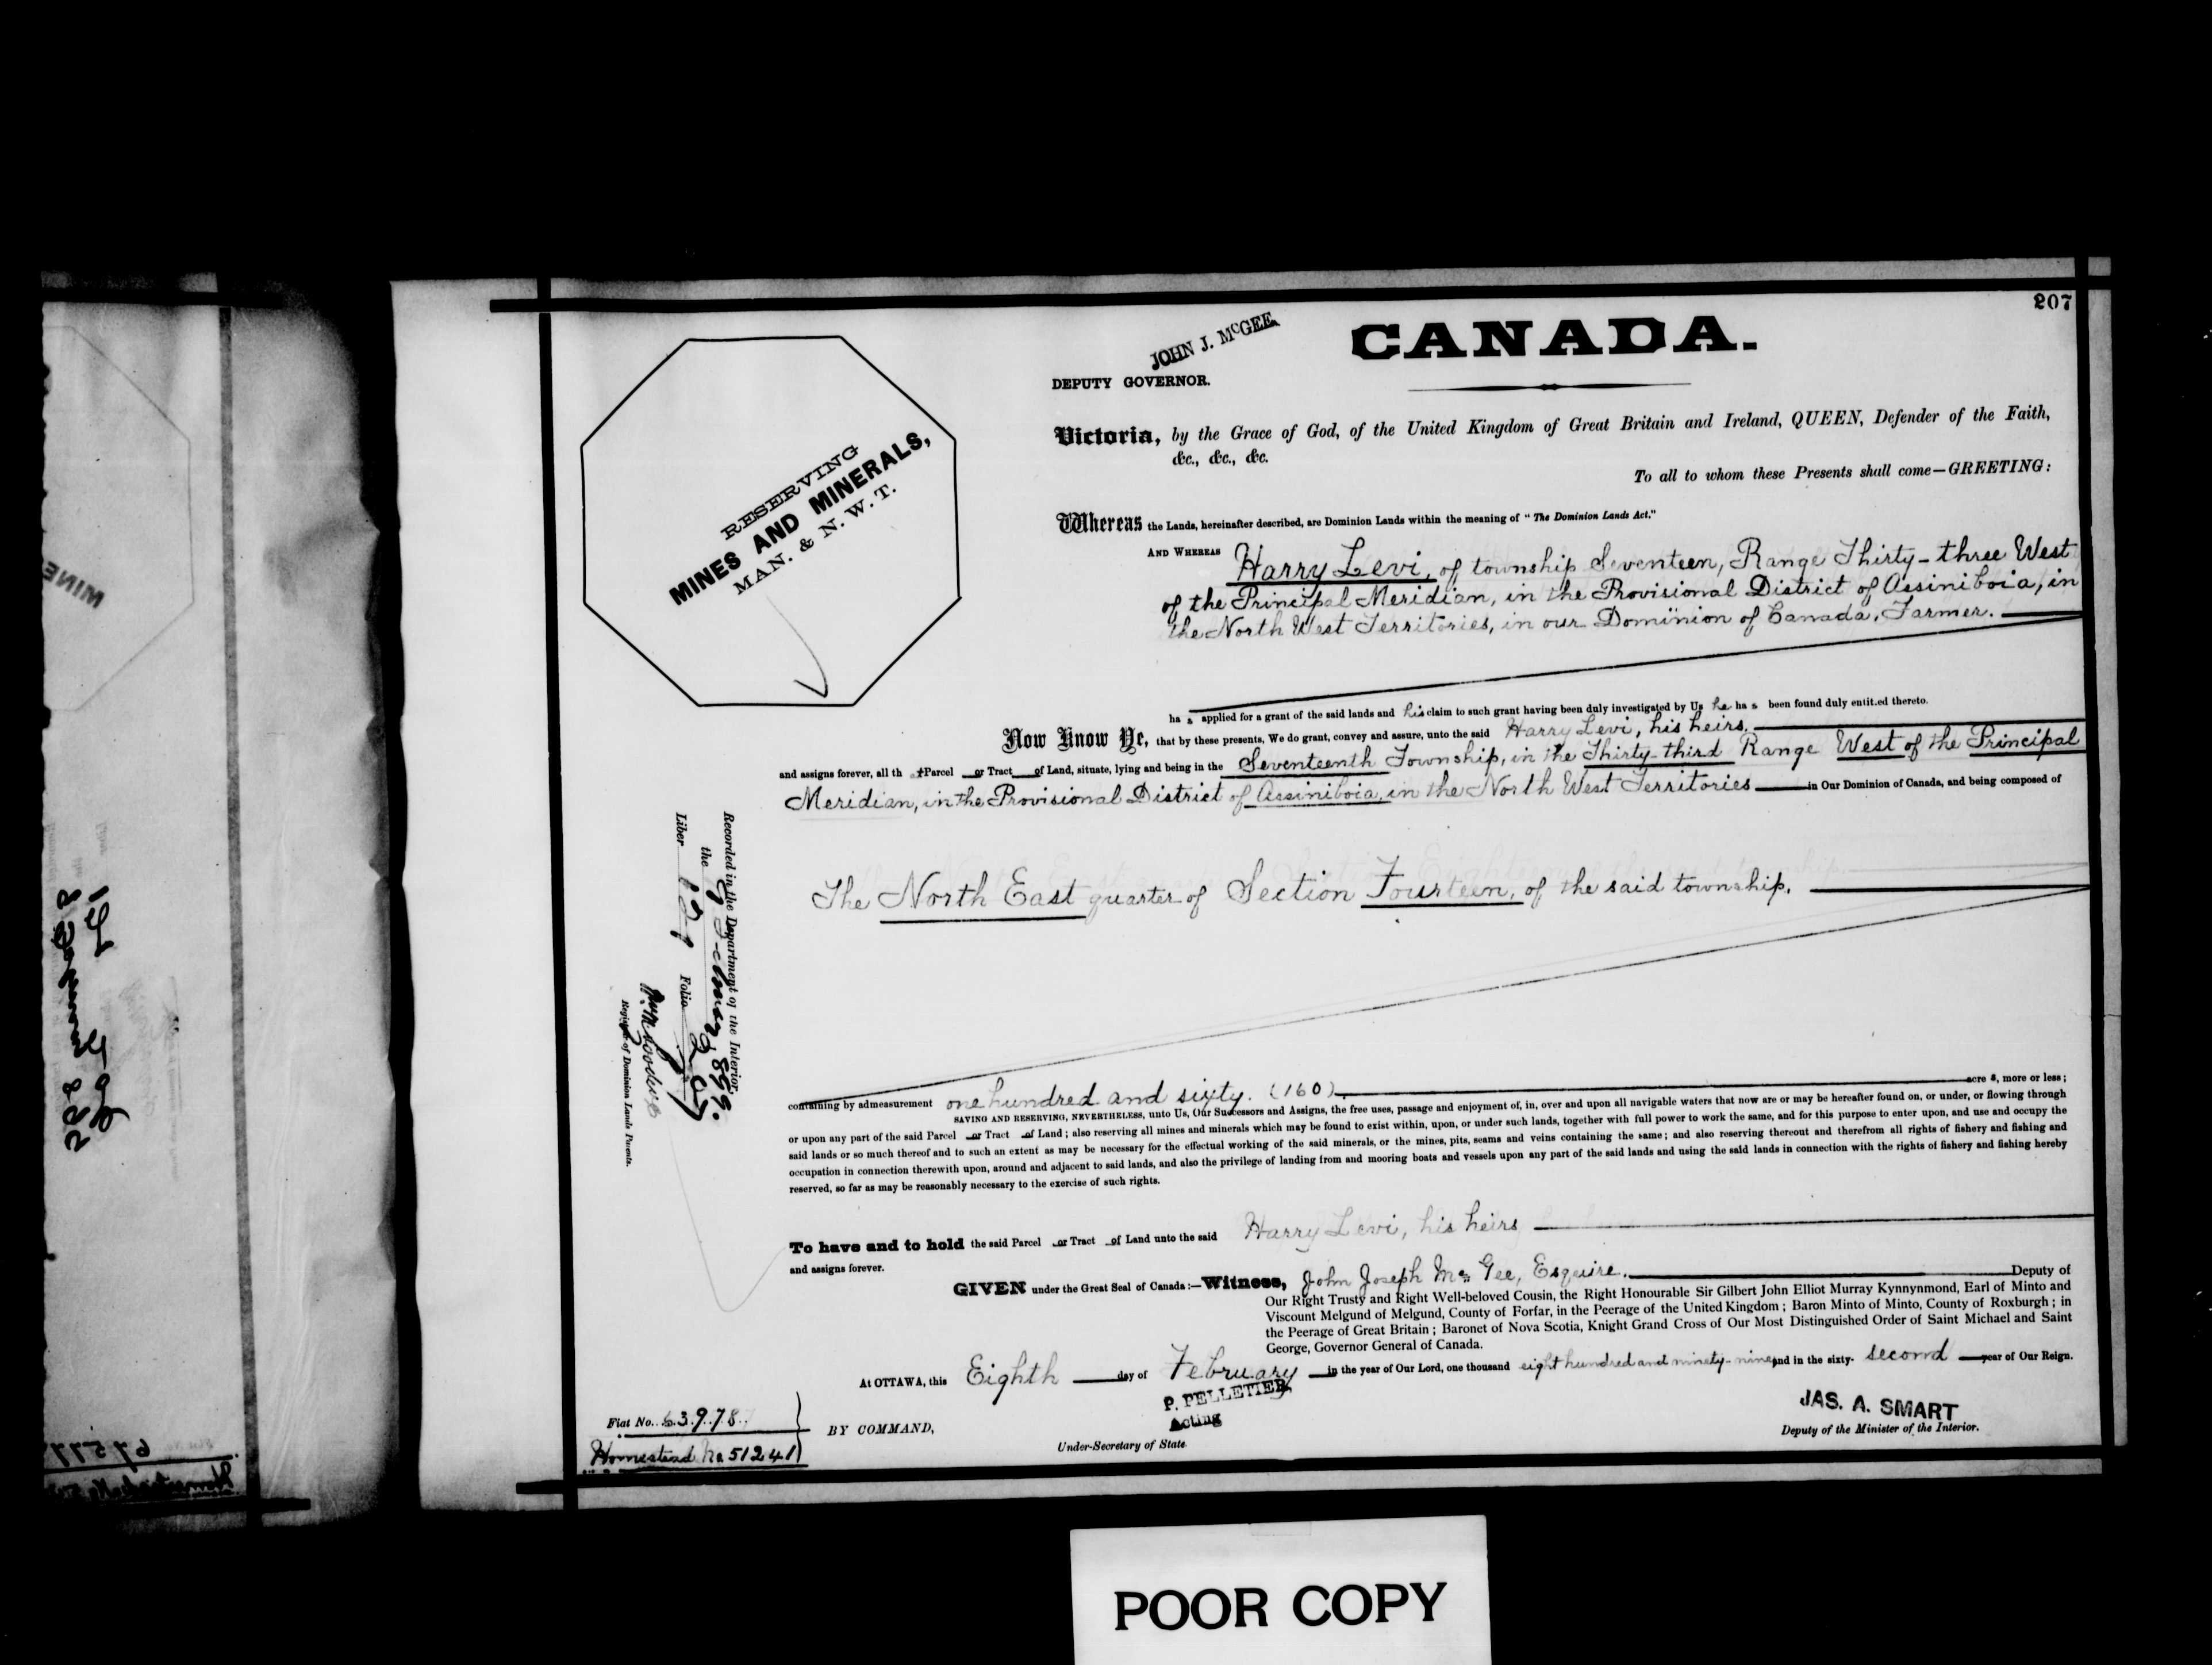 207
CANADA.
JOHN J. McGEE
DEPUTY GOVERNOR.
RESERVING
MINES AND MINERALS,
MAN. & N. W. T.
Victoria, by the Grace of God, of the United Kingdom of Great Britain and Ireland, QUEEN, Defender of the Faith,
&c., &c., &c.
To all to whom these Presents shall come—GREETING:
Whereas the Lands, hereinafter described, are Dominion Lands within the meaning of "The Dominion Lands Act."
AND WHEREAS Harry Levi, of township Seventeen, Range Thirty-three West
of the Principal Meridian, in the Provisional District of Assiniboia, in
the North West Territories, in our Dominion of Canada, Farmer.
ha s applied for a grant of the said lands and his claim to such grant having been duly investigated by Us he ha s been found duly entitled thereto.
Now Know Ye, that by these presents, We do grant, convey and assure, unto the said Harry Levi, his heirs.
and assigns forever, all th at Parcel or Tract of Land, situate, lying and being in the Seventeenth Township, in the Thirty-third Range West of the Principal
Meridian, in the Provisional District of Assiniboia, in the North West Territories in Our Dominion of Canada, and being composed of
The North East quarter of Section Fourteen, of the said township.
Recorded in the Department of the Interior
the 9 February 1899.
Liber 121 Folio 207
Registrar of Dominion Lands Patents.
containing by admeasurement one hundred and sixty. (160) acre s, more or less;
SAVING AND RESERVING, NEVERTHELESS, unto Us, Our Successors and Assigns, the free uses, passage and enjoyment of, in, over and upon all navigable waters that now are or may be hereafter found on, or under, or flowing through
or upon any part of the said Parcel or Tract of Land; also reserving all mines and minerals which may be found to exist within, upon, or under such lands, together with full power to work the same, and for this purpose to enter upon, and use and occupy the
said lands or so much thereof and to such an extent as may be necessary for the effectual working of the said minerals, or the mines, pits, seams and veins containing the same; and also reserving thereout and therefrom all rights of fishery and fishing and
occupation in connection therewith upon, around and adjacent to said lands, and also the privilege of landing from and mooring boats and vessels upon any part of the said lands and using the said lands in connection with the rights of fishery and fishing hereby
reserved, so far as may be reasonably necessary to the exercise of such rights.
To have and to hold the said Parcel or Tract of Land unto the said Harry Levi, his heirs
and assigns forever.
GIVEN under the Great Seal of Canada:—Witness, John Joseph McGee, Esquire. Deputy of
Our Right Trusty and Right Well-beloved Cousin, the Right Honourable Sir Gilbert John Elliot Murray Kynnynmond, Earl of Minto and
Viscount Melgund of Melgund, County of Forfar, in the Peerage of the United Kingdom; Baron Minto of Minto, County of Roxburgh; in
the Peerage of Great Britain; Baronet of Nova Scotia, Knight Grand Cross of Our Most Distinguished Order of Saint Michael and Saint
George, Governor General of Canada.
At OTTAWA, this Eighth day of February in the year of Our Lord, one thousand eight hundred and ninety-nine and in the sixty- second year of Our Reign.
P. PELLETIER,
Acting
JAS. A. SMART
Fiat No. 63978
BY COMMAND,
Under-Secretary of State
Deputy of the Minister of the Interior.
Homestead No 51241
POOR COPY